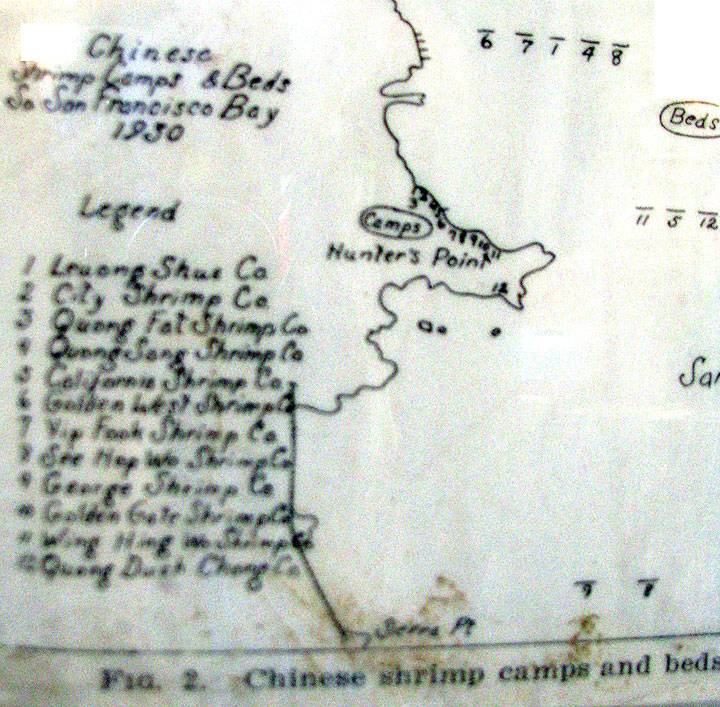 Chinese
Shrimp Camps & Beds
So San Francisco Bay
1930
6 7 1 4 8
Beds
11 5 12
Camps
Hunter's Point
7 8 9 10 11
12
San
Legend
1 Leuong Shue Co
2 City Shrimp Co
3 Quong Fat Shrimp Co
4 Quong Sang Shrimp Co
5 California Shrimp Co
6 Golden West Shrimp Co
7 Yip Fook Shrimp Co
8 See Hop Wo Shrimp Co
9 George Shrimp Co
10 Golden Gate Shrimp Co
11 Wing Hing Wo Shrimp Co
12 Quong Duck Chong Co
Sierra Pt
FIG. 2. Chinese shrimp camps and beds